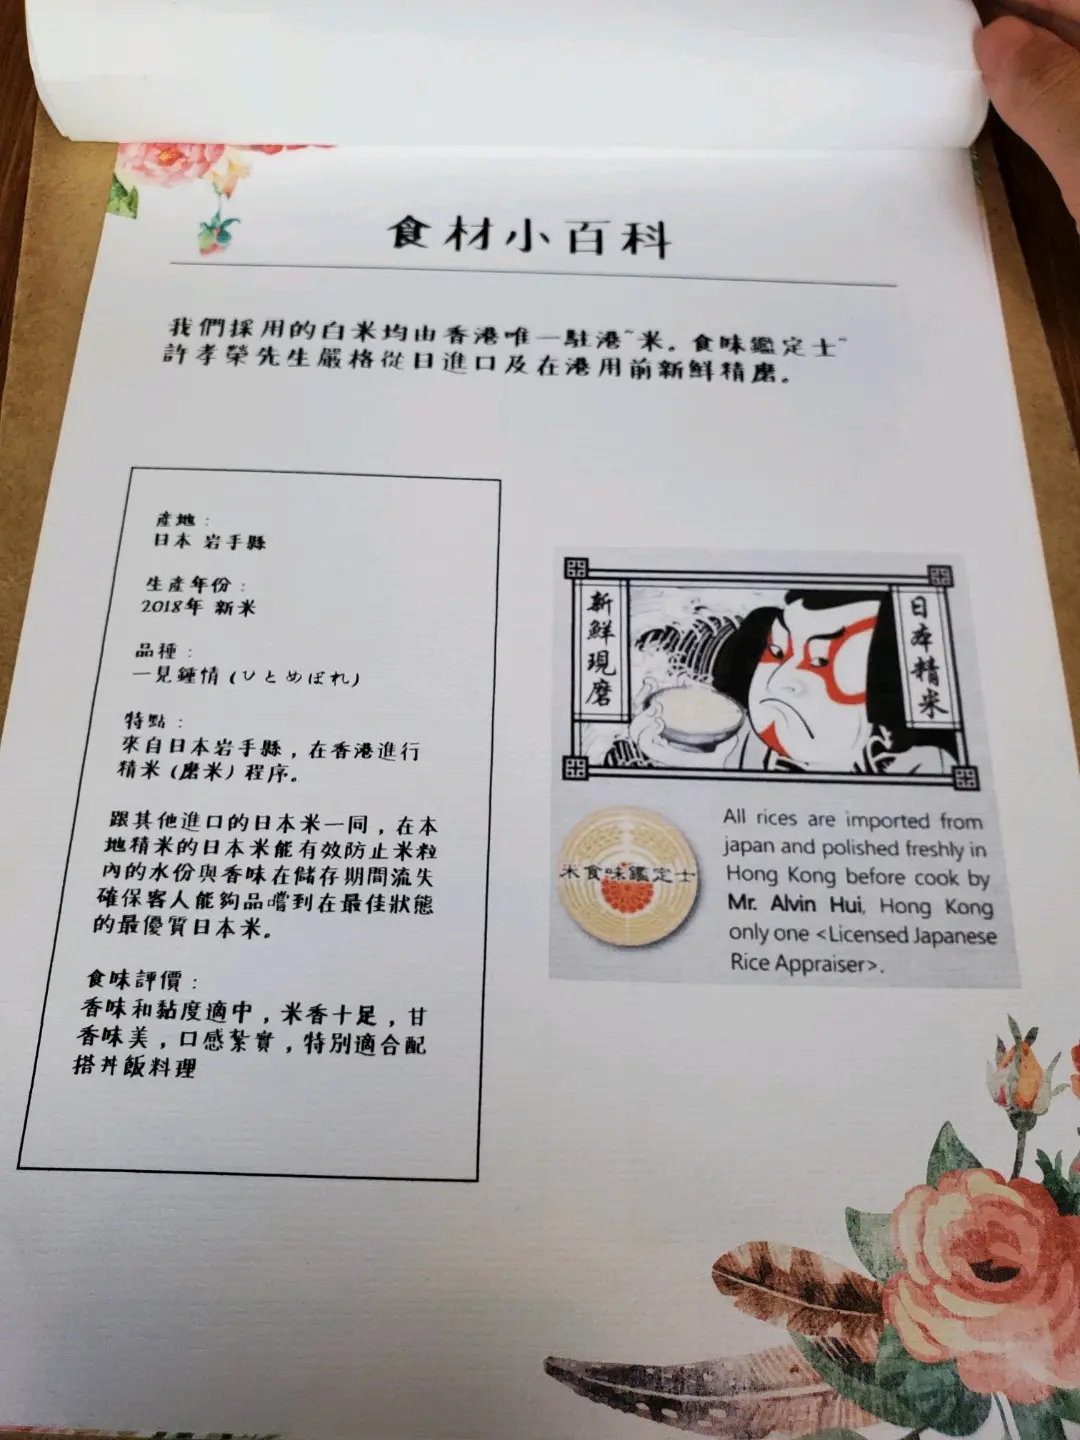 食材小百科
我們採用的白米均由香港唯一駐港~米。食味鑑定士~
許孝榮先生嚴格從日進口及在港用前新鮮精磨。
產地：
日本 岩手縣
生產年份：
2018年 新米
品種：
一見鍾情 (ひとめぼれ)
特點：
來自日本岩手縣，在香港進行
精米 (磨米) 程序。
跟其他進口的日本米一同，在本
地精米的日本米能有效防止米粒
內的水份與香味在儲存期間流失
確保客人能夠品嚐到在最佳狀態
的最優質日本米。
食味評價：
香味和黏度適中，米香十足，甘
香味美，口感紮實，特別適合配
搭丼飯料理
新鮮現磨
日本精米
米食味鑑定士
All rices are imported from
japan and polished freshly in
Hong Kong before cook by
Mr. Alvin Hui, Hong Kong
only one <Licensed Japanese
Rice Appraiser>.